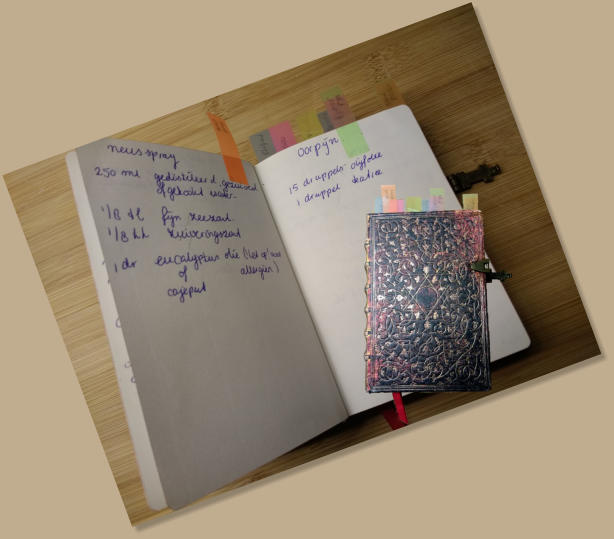 neusspray
250 ml gedistilleerd, gezuiverd
of gekookt water
1/8 tl fijn zeezout
1/8 tl zuiveringszout
1 dr eucalyptus olie (let op! ivm
of allergiën)
cajeput
oorpijn
15 druppels olijfolie
1 druppel